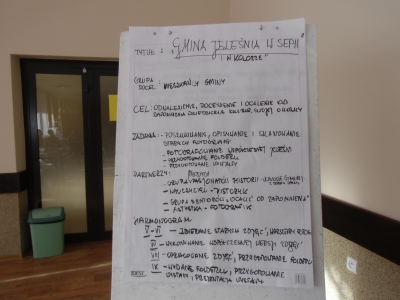 TYTUŁ: "GMINA JELEŚNIA W SEPII
I W KOLORZE"
GRUPA
DOCEL: MIESZKAŃCY GMINY
CEL: ODNALEZIENIE, DOCENIENIE I OCALENIE OD
ZAPOMNIENIA DZIEDZICTWA KULTUR. SWOJEJ
ZADANIA: - POSZUKIWANIE, OPISYWANIE I SKANOWANIE
STARYCH FOTOGRAFII
- FOTOGRAFOWANIE WSPÓŁCZESNEJ JELEŚNI
- PRZYGOTOWANIE FOLDERU
- PRZYGOTOWANIE WYSTAWY
PARTNERZY:
- GRUPA PASJONATÓW HISTORII
- NAUCZYCIEL - HISTORYK
- GRUPA SENIORÓW "OCALIĆ OD ZAPOMNIENIA"
- ARTYSTKA - FOTOGRAFIK
HARMONOGRAM
V - VI - ZBIERANIE STARYCH ZDJĘĆ, WARSZTATY
VI - WYKONYWANIE WSPÓŁCZESNEJ WERSJI ZDJĘĆ
VII - OPRACOWANIE ZDJĘĆ, PRZYGOTOWANIE FOLDERU
IX - WYDANIE FOLDERU, PRZYGOTOWANIE
WYSTAWY I PREZENTACJA WYSTAWY